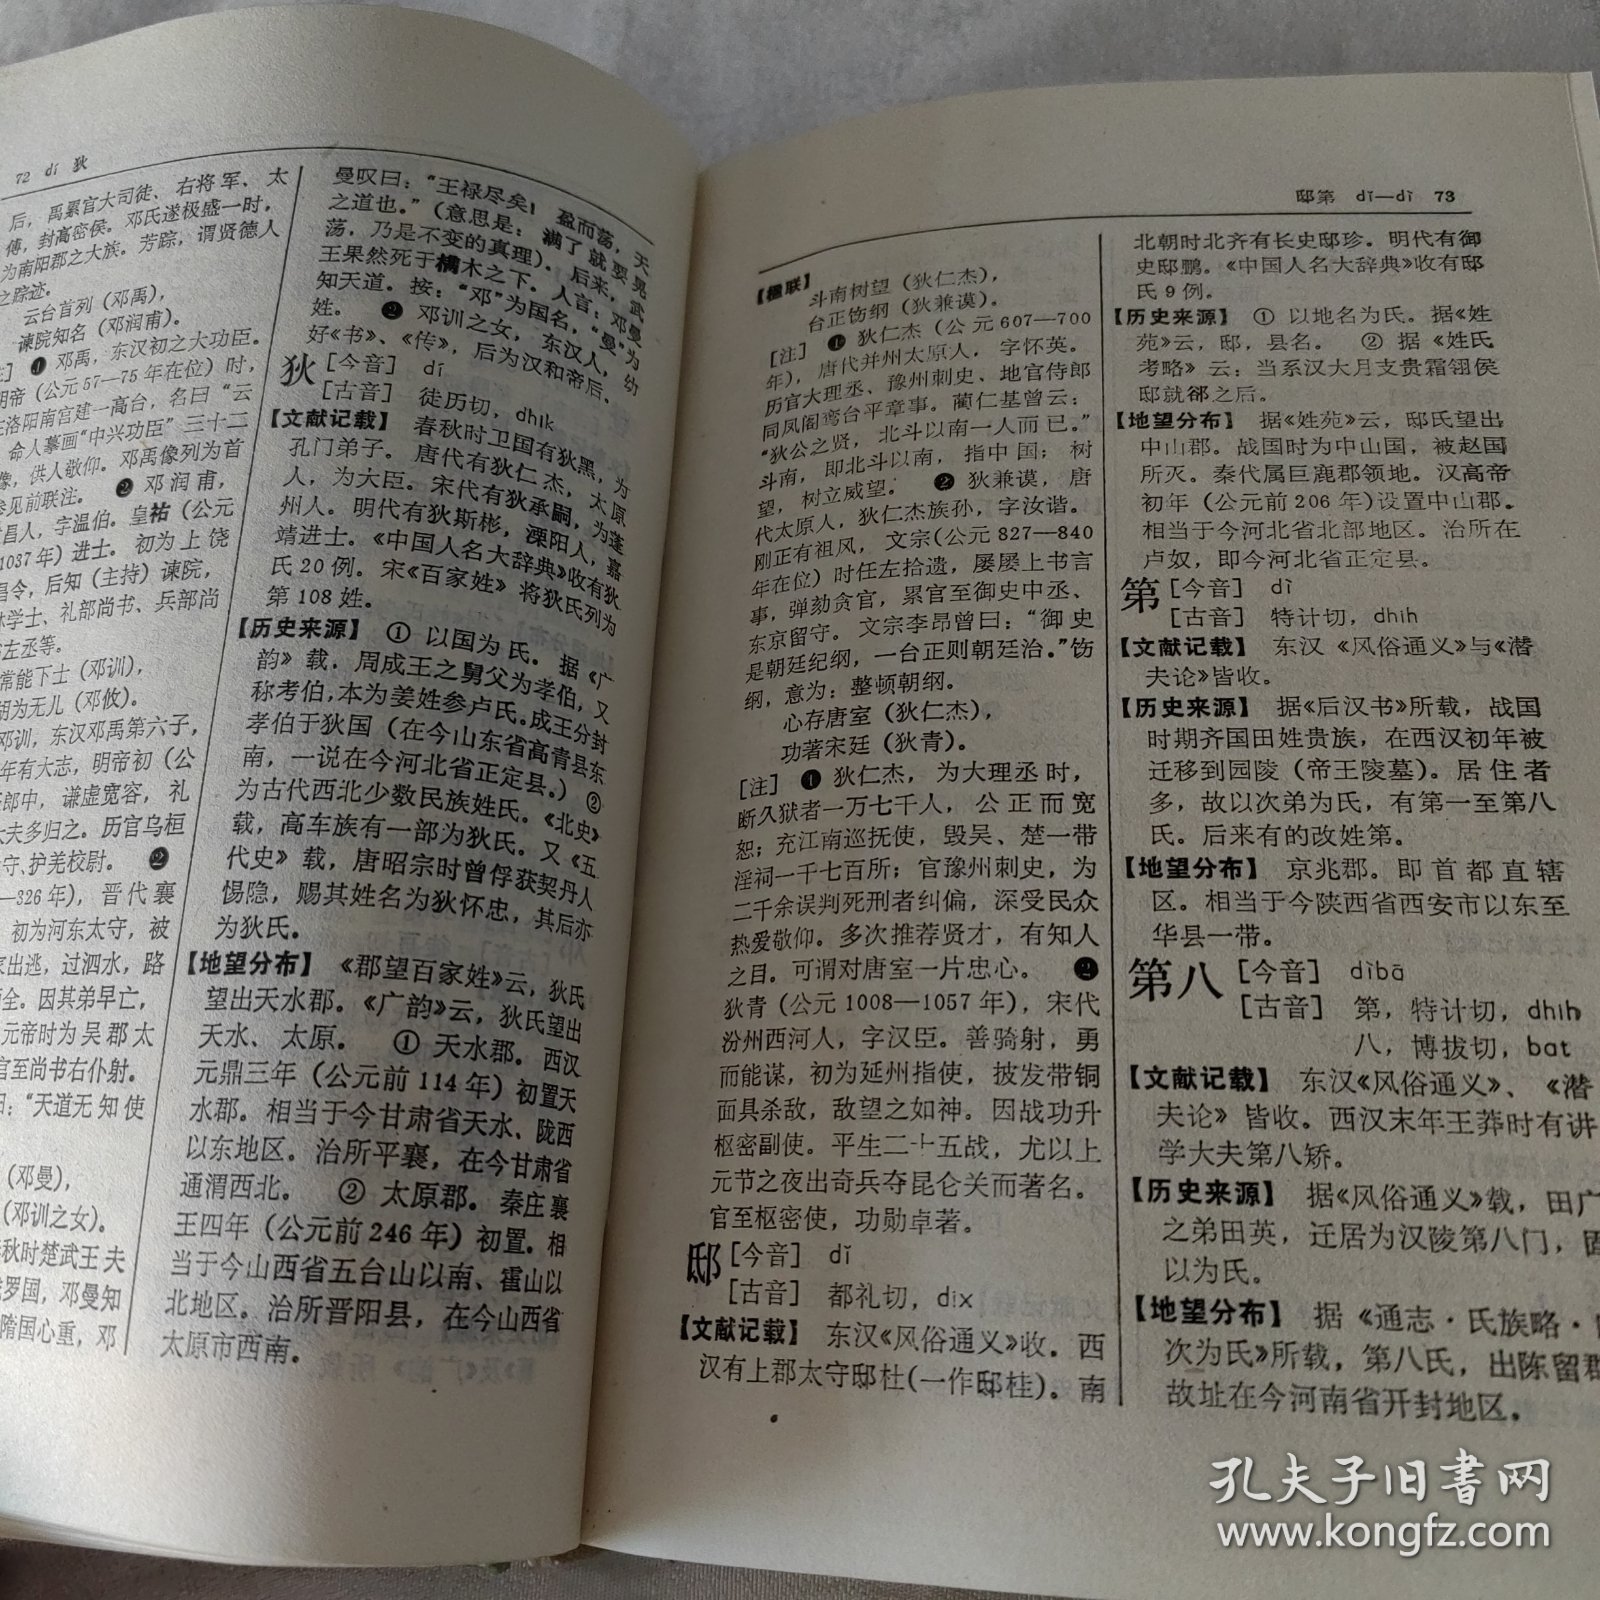 72 dí 狄
后，禹累官大司徒、右将军、太
傅，封高密侯。邓氏遂极盛一时，
为南阳郡之大族。芳踪，谓贤德人
之踪迹。
云台首列（邓禹），
谏院知名（邓润甫）。
❶邓禹，东汉初之大功臣。
明帝（公元57—75年在位）时，
在洛阳南宫建一高台，名曰“云
命人摹画“中兴功臣”三十二
像，供人敬仰。邓禹像列为首
参见前联注。❷邓润甫，
昌人，字温伯。皇祐（公元
1037年）进士。初为上饶
县令，后知（主持）谏院，
林学士、礼部尚书、兵部尚
书左丞等。
常能下士（邓训），
胡为无儿（邓攸）。
邓训，东汉邓禹第六子，
年有大志，明帝初（公
郎中，谦虚宽容，礼
大夫多归之。历官乌桓
守、护羌校尉。❷
—326年），晋代襄
初为河东太守，被
家出逃，过泗水，路
两全。因其弟早亡，
元帝时为吴郡太
官至尚书右仆射。
曰：“天道无知使
（邓曼），
（邓训之女）。
春秋时楚武王夫
罗国，邓曼知
隋国心重，邓
曼叹曰：“王禄尽矣！盈而荡，天
之道也。”（意思是：满了就要晃
荡，乃是不变的真理）。后来，武
王果然死于樠木之下。人言：邓曼
知天道。按：“邓”为国名，“曼”为
姓。❷邓训之女，东汉人，幼
好《书》、《传》，后为汉和帝后。
狄［今音］ dí
［古音］ 徒历切，dhik
【文献记载】 春秋时卫国有狄黑，为
孔门弟子。唐代有狄仁杰，太原
人，为大臣。宋代有狄承嗣，为蓬
州人。明代有狄斯彬，溧阳人，嘉
靖进士。《中国人名大辞典》收有狄
氏20例。宋《百家姓》将狄氏列为
第108姓。
【历史来源】 ①以国为氏。据《广
韵》载，周成王之舅父为孝伯，又
称考伯，本为姜姓参卢氏。成王分封
孝伯于狄国（在今山东省高青县东
南，一说在今河北省正定县。）②
为古代西北少数民族姓氏。《北史》
载，高车族有一部为狄氏。又《五
代史》载，唐昭宗时曾俘获契丹人
惕隐，赐其姓名为狄怀忠，其后亦
为狄氏。
【地望分布】 《郡望百家姓》云，狄氏
望出天水郡。《广韵》云，狄氏望出
天水、太原。 ①天水郡。西汉
元鼎三年（公元前114年）初置天
水郡。相当于今甘肃省天水、陇西
以东地区。治所平襄，在今甘肃省
通渭西北。 ②太原郡。秦庄襄
王四年（公元前246年）初置。相
当于今山西省五台山以南、霍山以
北地区。治所晋阳县，在今山西省
太原市西南。
邸第 dǐ—dì 73
【楹联】
斗南树望（狄仁杰），
台正饬纲（狄兼谟）。
［注］❶狄仁杰（公元607—700
年），唐代并州太原人，字怀英。
历官大理丞、豫州刺史、地官侍郎
同凤阁鸾台平章事。蔺仁基曾云：
“狄公之贤，北斗以南一人而已。”
斗南，即北斗以南，指中国；树
望，树立威望。❷狄兼谟，唐
代太原人，狄仁杰族孙，字汝谐。
刚正有祖风，文宗（公元827—840
年在位）时任左拾遗，屡屡上书言
事，弹劾贪官，累官至御史中丞、
东京留守。文宗李昂曾曰：“御史
是朝廷纪纲，一台正则朝廷治。”饬
纲，意为：整顿朝纲。
心存唐室（狄仁杰），
功著宋廷（狄青）。
［注］❶狄仁杰，为大理丞时，
断久狱者一万七千人，公正而宽
恕；充江南巡抚使，毁吴、楚一带
淫祠一千七百所；官豫州刺史，为
二千余误判死刑者纠偏，深受民众
热爱敬仰。多次推荐贤才，有知人
之目。可谓对唐室一片忠心。❷
狄青（公元1008—1057年），宋代
汾州西河人，字汉臣。善骑射，勇
而能谋，初为延州指使，披发带铜
面具杀敌，敌望之如神。因战功升
枢密副使。平生二十五战，尤以上
元节之夜出奇兵夺昆仑关而著名。
官至枢密使，功勋卓著。
邸［今音］ dǐ
［古音］ 都礼切，dix
【文献记载】 东汉《风俗通义》收。西
汉有上郡太守邸杜（一作邸桂）。南
北朝时北齐有长史邸珍。明代有御
史邸鹏。《中国人名大辞典》收有邸
氏9例。
【历史来源】 ①以地名为氏。据《姓
苑》云，邸，县名。 ②据《姓氏
考略》云：当系汉大月支贵霜翎侯
邸就郤之后。
【地望分布】 据《姓苑》云，邸氏望出
中山郡。战国时为中山国，被赵国
所灭。秦代属巨鹿郡领地。汉高帝
初年（公元前206年）设置中山郡。
相当于今河北省北部地区。治所在
卢奴，即今河北省正定县。
第［今音］ dì
［古音］ 特计切，dhih
【文献记载】 东汉《风俗通义》与《潜
夫论》皆收。
【历史来源】 据《后汉书》所载，战国
时期齐国田姓贵族，在西汉初年被
迁移到园陵（帝王陵墓）。居住者
多，故以次弟为氏，有第一至第八
氏。后来有的改姓第。
【地望分布】 京兆郡。即首都直辖
区。相当于今陕西省西安市以东至
华县一带。
第八［今音］ dìbā
［古音］ 第，特计切，dhih
八，博拔切，bat
【文献记载】 东汉《风俗通义》、《潜
夫论》皆收。西汉末年王莽时有讲
学大夫第八矫。
【历史来源】 据《风俗通义》载，田广
之弟田英，迁居为汉陵第八门，因
以为氏。
【地望分布】 据《通志·氏族略·
次为氏》所载，第八氏，出陈留郡
故址在今河南省开封地区。
孔夫子旧书网
www.kongfz.com